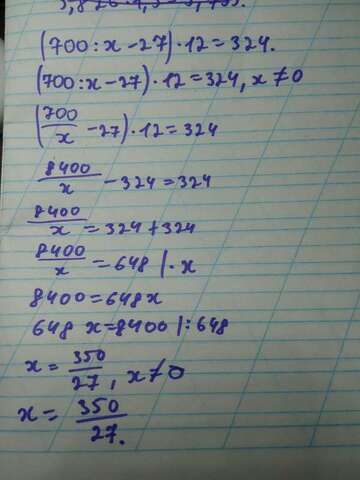 (700:x-27)·12=324.
(700:x-27)·12=324, x≠0
(700/x -27)·12=324
8400/x -324=324
8400/x = 324+324
8400/x =648 |·x
8400=648x
648 x=8400 |:648
x= 350/27, x≠0
x= 350/27.